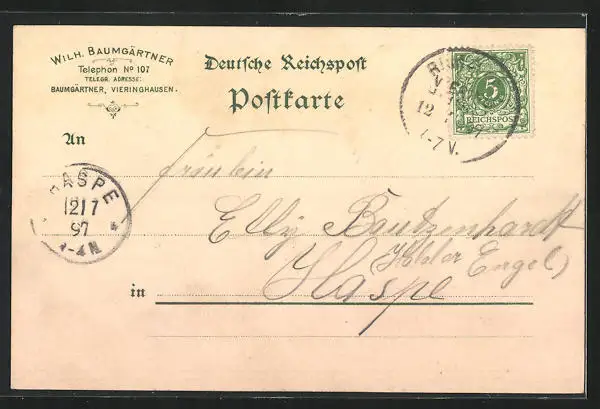 WILH. BAUMGÄRTNER
Telephon No 107
TELEGR. ADRESSE:
BAUMGÄRTNER, VIERINGHAUSEN.
Deutsche Reichspost
Postkarte
5
REICHSPOST
12
7 V.
An
HASPE
12 1 7
97
4 N
Fräulein
Elly Bautzenhardt
Engel)
in Haspe